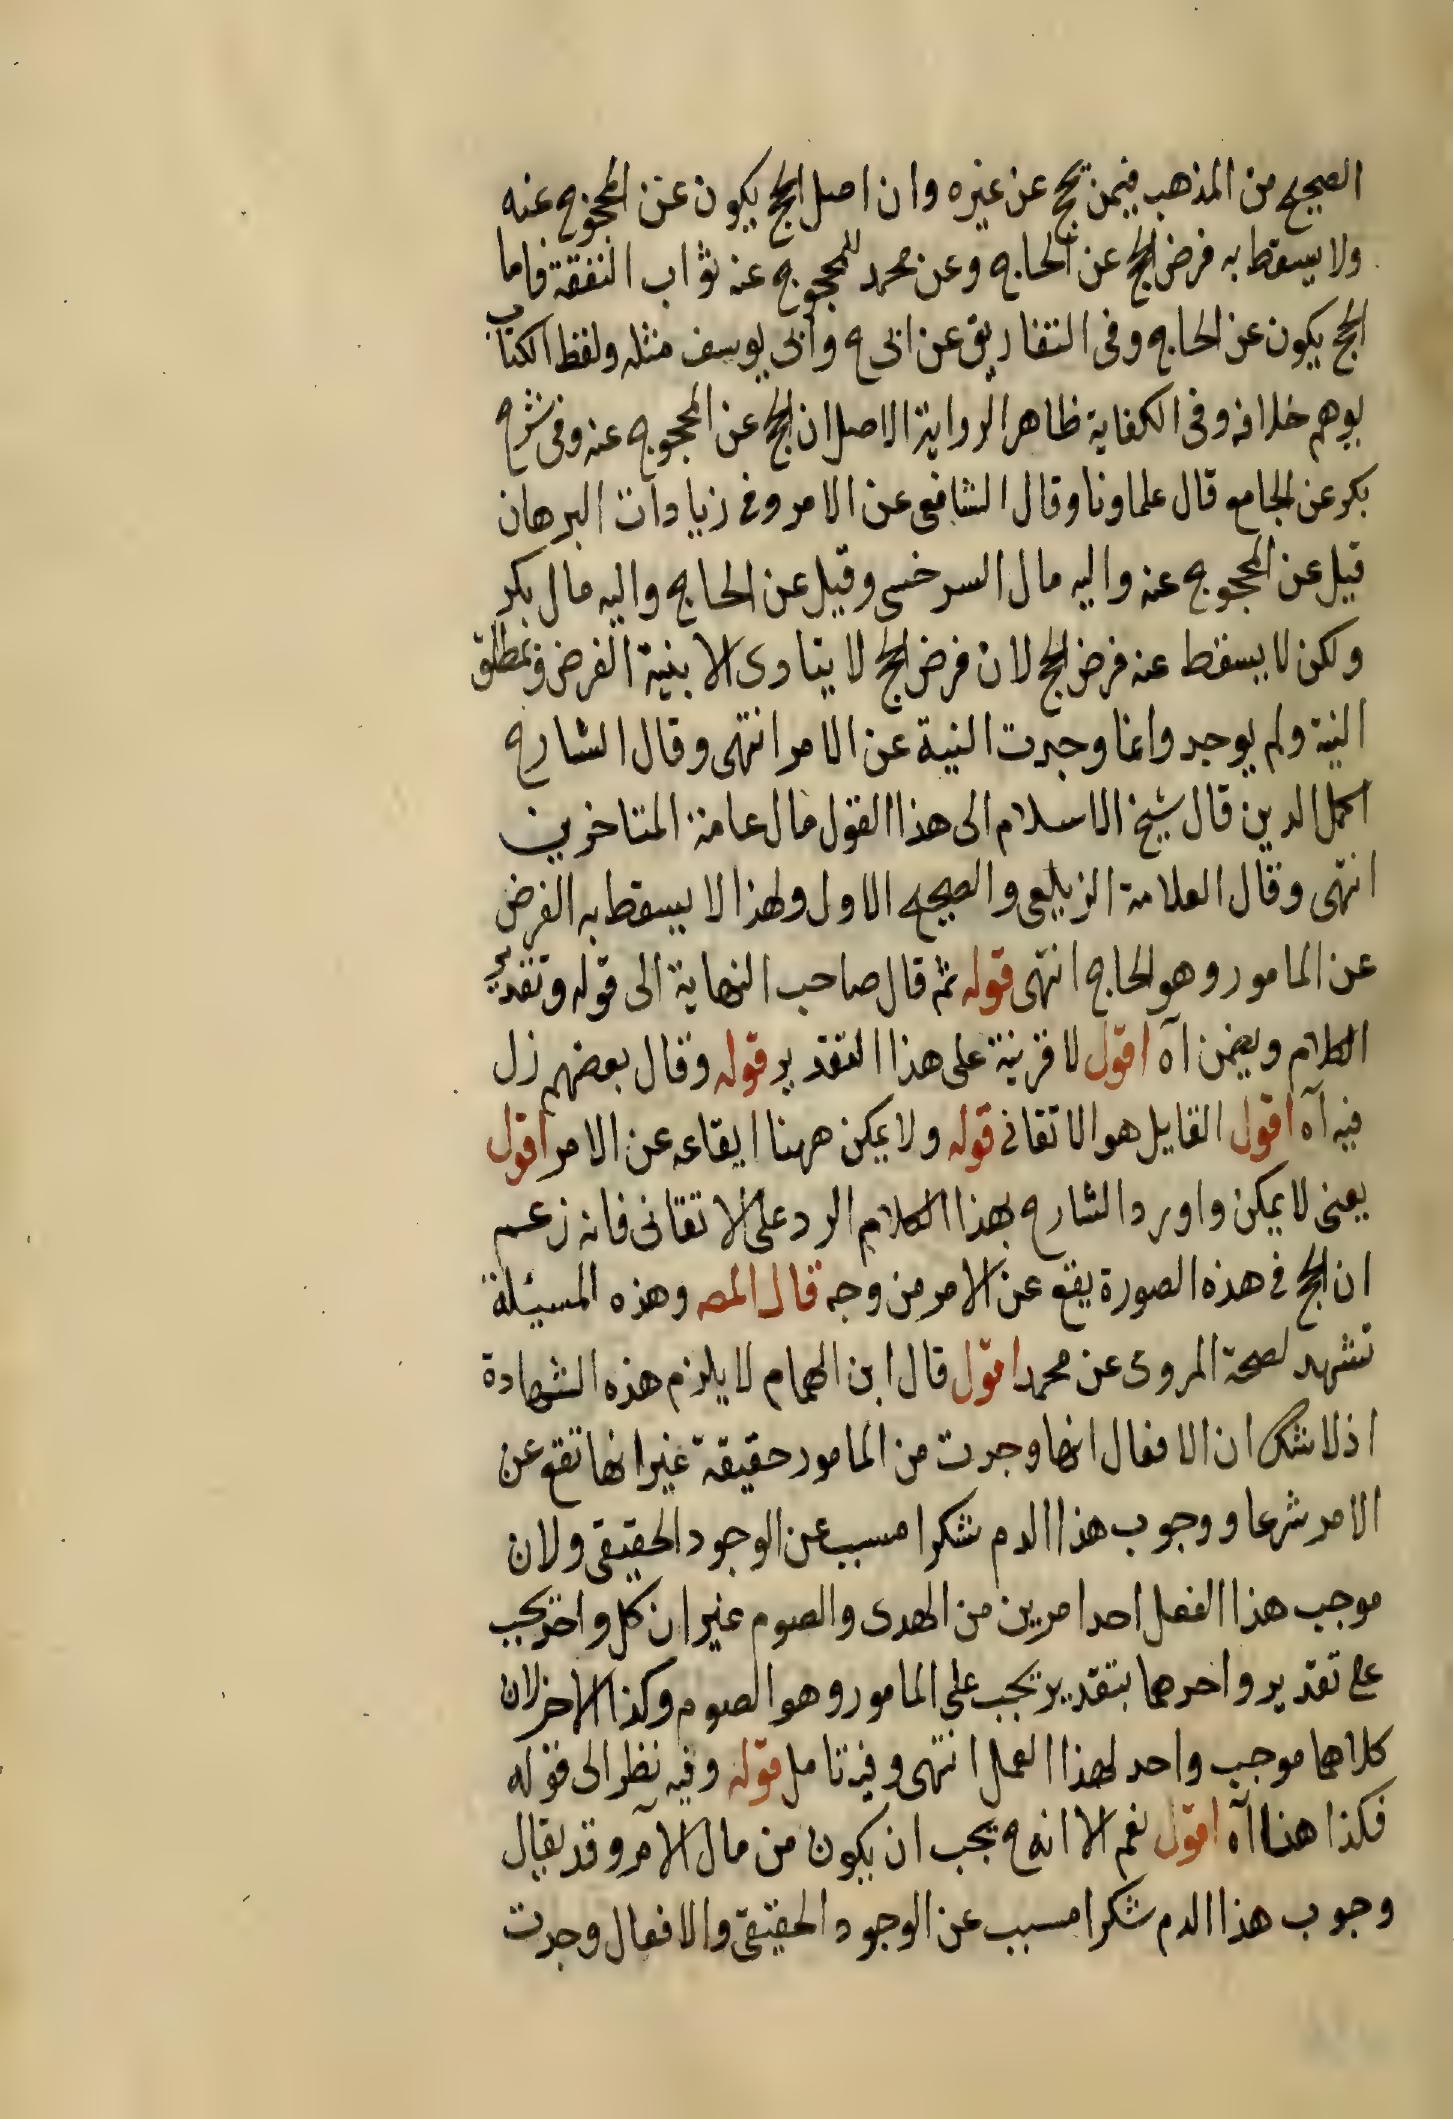 الصحيح من المذهب فيمن حج عن غيره وان اصل الحج يكون عن المحجوج عنه
ولا يسقط به فرض الحج عن الحاج وعن محمد للمحجوج عنه ثواب النفقة فاما
الحج يكون عن الحاج وفى التفاريق عن ابى ح وأبى يوسف مثله ولفظ الكتاب
يوهم خلافه وفى الكفاية ظاهر الرواية الاصل ان الحج عن المحجوج عنه وفى شرح
بكر عن الجامع قال علماونا وقال الشافعى عن الامر وفى زيادات البرهان
قيل عن المحجوج عنه واليه مال السرخسى وقيل عن الحاج واليه مال بكر
ولكن لا يسقط عنه فرض الحج لان فرض الحج لا يتادى الا بنية الفرض وبمطلق
النية ولم يوجد وانما وجدت النية عن الامر انتهى وقال الشارح
اكمل الدين قال شيخ الاسلام الى هذا القول مال عامة المتاخرين
انتهى وقال العلامة الزيلعى والصحيح الاول ولهذا لا يسقط به الفرض
عن المامور وهو الحاج انتهى قوله ثم قال صاحب النهاية الى قوله وتقدير
الكلام وبعمن آه اقول لا قرينة على هذا التقدير قوله وقال بعضهم زل
فيه آه اقول القايل هو الاتقانى قوله ولا يمكن ههنا ايقاعه عن الامر اقول
يعنى لا يمكن واورد الشارح بهذا الكلام الرد على الاتقانى فانه زعم
ان الحج فى هذه الصورة يقع عن الامر من وجه قال المصـ وهذه المسيئلة
تشهد لصحة المروى عن محمد اقول قال ابن الهمام لا يلزم هذه الشهادة
اذ لا شك ان الافعال انها وجدت من المامور حقيقة غير انها تقع عن
الامر شرعا ووجوب هذا الدم شكرا مسبب عن الوجود الحقيقى ولان
موجب هذا الفعل احد امرين من الهدى والصوم غير ان كل واحد يجب
على تقدير واحدهما بتقدير يجب على المامور وهو الصوم وكذا الاخر لان
كلاهما موجب واحد لهذا العمل انتهى وفيه تامل قوله وفيه نظر الى قوله
فكذا هنا آه اقول نعم الا انه ح يجب ان يكون من مال الآمر وقد يقال
وجوب هذا الدم شكرا مسبب عن الوجود الحقيقى والافعال وجدت